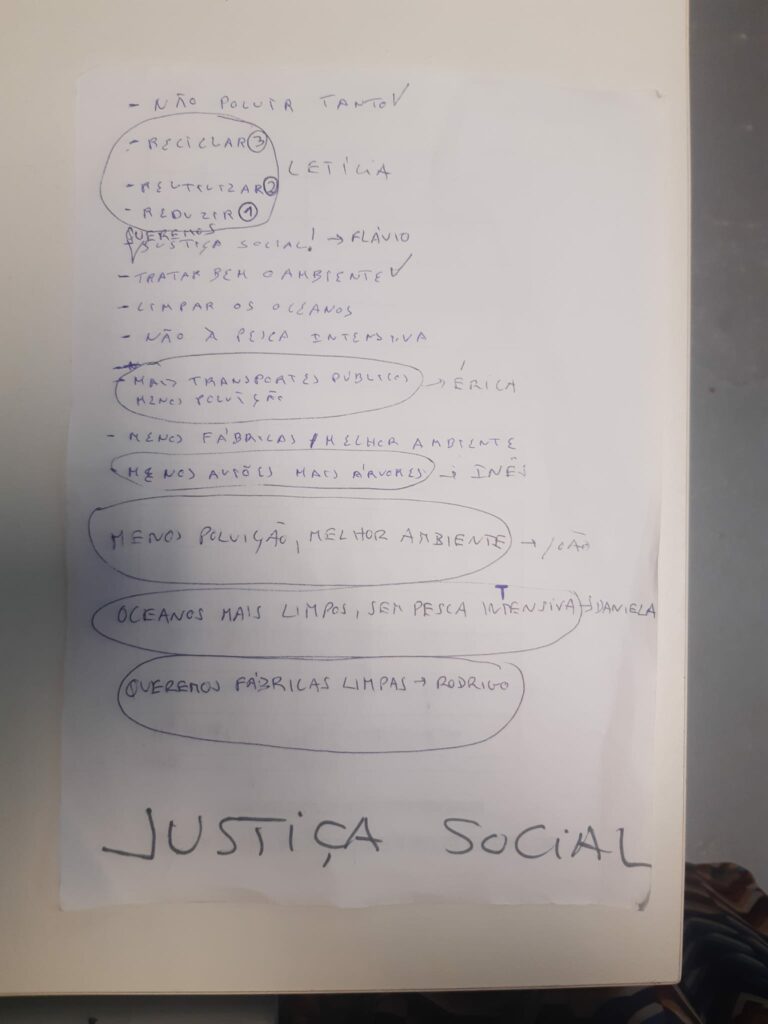 - NÃO POLUIR TANTO ✓
- RECICLAR ③
LETÍCIA
- REUTILIZAR ②
- REDUZIR ①
QUEREMOS
- JUSTIÇA SOCIAL! → FLÁVIO
- TRATAR BEM O AMBIENTE ✓
- LIMPAR OS OCEANOS
- NÃO À PESCA INTENSIVA
- MAIS TRANSPORTES PÚBLICOS → ÉRICA
MENOS POLUIÇÃO
- MENOS FÁBRICAS / MELHOR AMBIENTE
- MENOS AVIÕES MAIS ÁRVORES → INÊS
MENOS POLUIÇÃO, MELHOR AMBIENTE → JOÃO
OCEANOS MAIS LIMPOS, SEM PESCA INTENSIVA → DANIELA
QUEREMOS FÁBRICAS LIMPAS → RODRIGO
JUSTIÇA SOCIAL